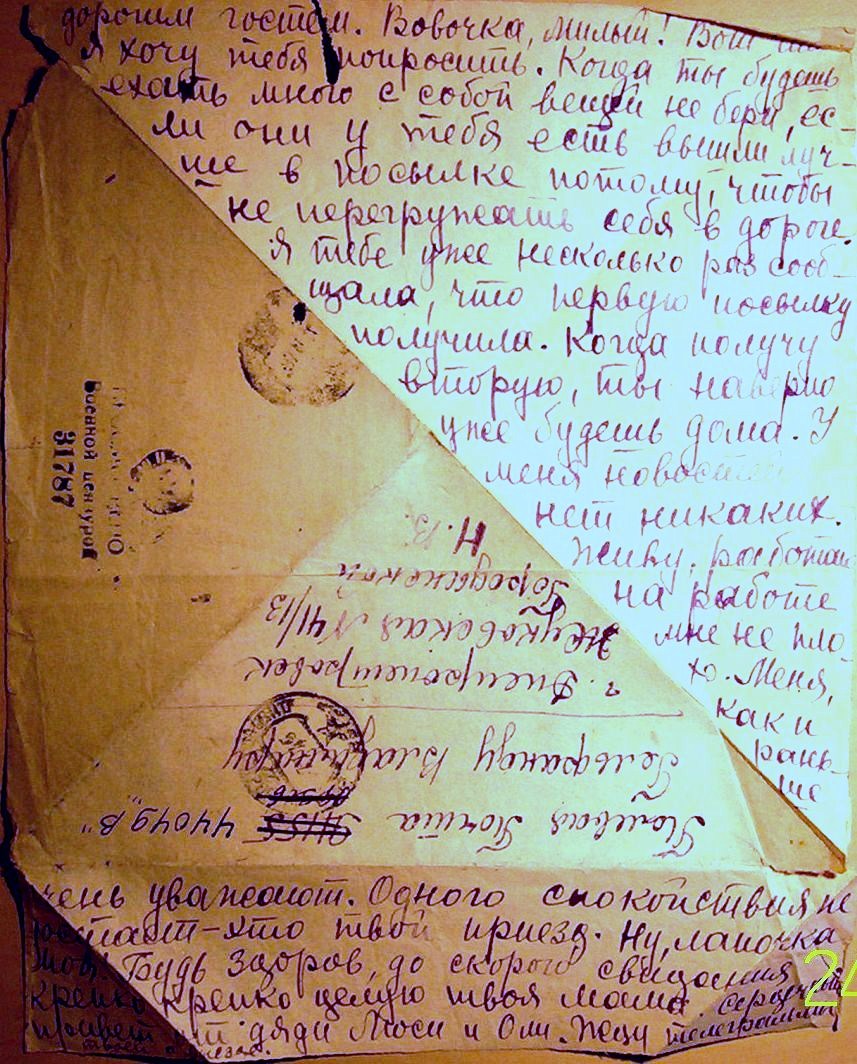 дорогим гостем. Вовочка, милый! Вот
я хочу тебя попросить. Когда ты будешь
ехать много с собой вещей не бери, ес-
ли они у тебя есть вышли луч-
ше в посылке потому, чтобы
не перегружать себя в дороге.
Я тебе уже несколько раз сооб-
щала, что первую посылку
получила. Когда получу
вторую, ты наверно
уже будешь дома. У
меня новостей
нет никаких.
Живу, работаю
на работе
мне не пло-
хо. Меня,
как и
рань-
ше
чень уважают. Одного спокойствия не
достает - это твой приезд. Ну, лапочка
моя! Будь здоров, до скорого свидания
крепко крепко целую твоя мама. Сердечный
привет от дяди Люси и Оли. Жду телеграммы
Полевая Почта 44049 „В"
Гельфанду Владимиру
г. Днепропетровск
Жуковская № 41/13
Городынской
Н. В.
Военной цензурой
31787
24